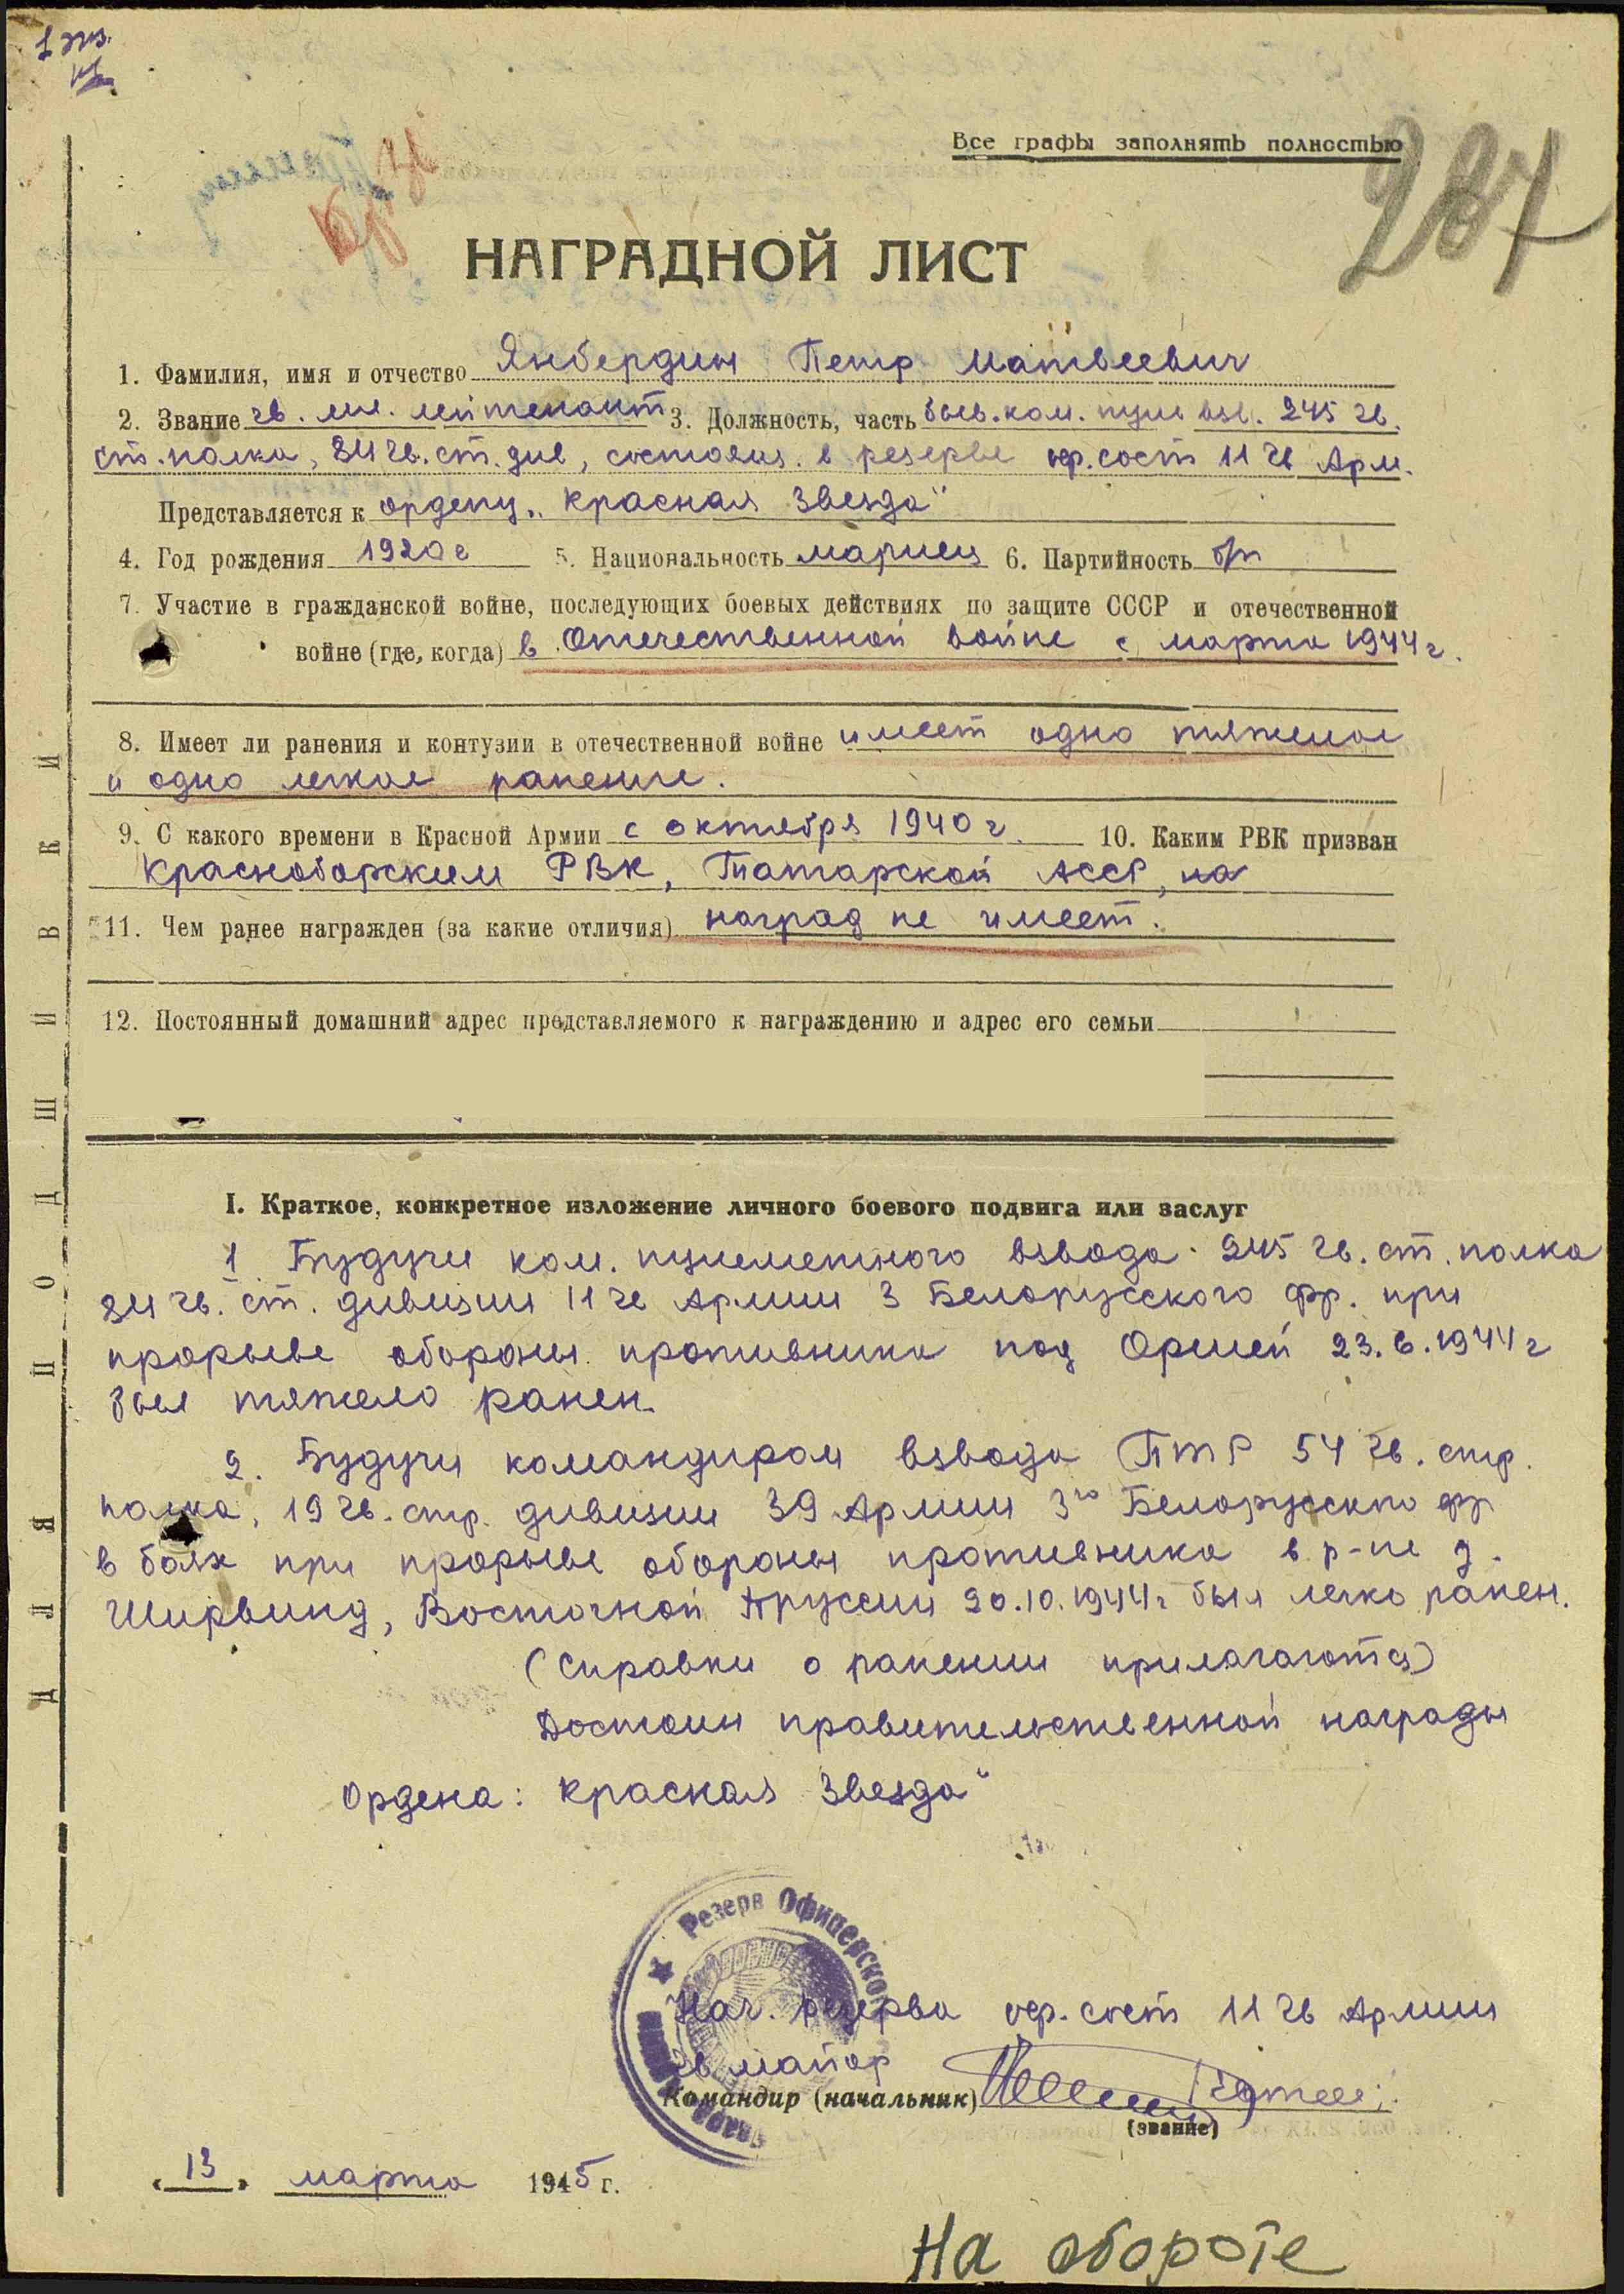 1 экз.
Все графы заполнять полностью
287
НАГРАДНОЙ ЛИСТ
1. Фамилия, имя и отчество Янбердин Петр Матвеевич
2. Звание гв. мл. лейтенант 3. Должность, часть быв. ком. пул. взв. 245 гв.
ст. полка, 84 гв. ст. див, состоящ. в резерве оф. сост 11 гв Арм.
Представляется к ордену „Красная Звезда"
4. Год рождения 1920 г 5. Национальность мариец 6. Партийность б/п
7. Участие в гражданской войне, последующих боевых действиях по защите СССР и отечественной
войне (где, когда) в Отечественной войне с марта 1944 г.
8. Имеет ли ранения и контузии в отечественной войне имеет одно тяжелое
и одно легкое ранение.
9. С какого времени в Красной Армии с октября 1940 г. 10. Каким РВК призван
Красноборским РВК, Татарской АССР,
11. Чем ранее награжден (за какие отличия) наград не имеет.
12. Постоянный домашний адрес представляемого к награждению и адрес его семьи
I. Краткое, конкретное изложение личного боевого подвига или заслуг
1 Будучи ком. пулеметного взвода 245 гв. ст. полка
84 гв. ст. дивизии 11 гв Армии 3 Белорусского фр. при
прорыве обороны противника под Оршей 23.6.1944 г
был тяжело ранен.
2. Будучи командиром взвода ПТР 54 гв. стр.
полка, 19 гв. стр. дивизии 39 Армии 3го Белорусского фр
в боях при прорыве обороны противника в р-не д.
Ширвинд, Восточной Пруссии 20.10.1944 г был легко ранен.
(Справки о ранении прилагаются)
Достоин правительственной награды
Ордена: Красная Звезда"
Резерв Офицерского
Нач. резерва оф. сост 11 гв Армии
гв майор
Командир (начальник)
(звание)
„13" марта 1945 г.
На обороте
ДЛЯ ПОДШИВКИ